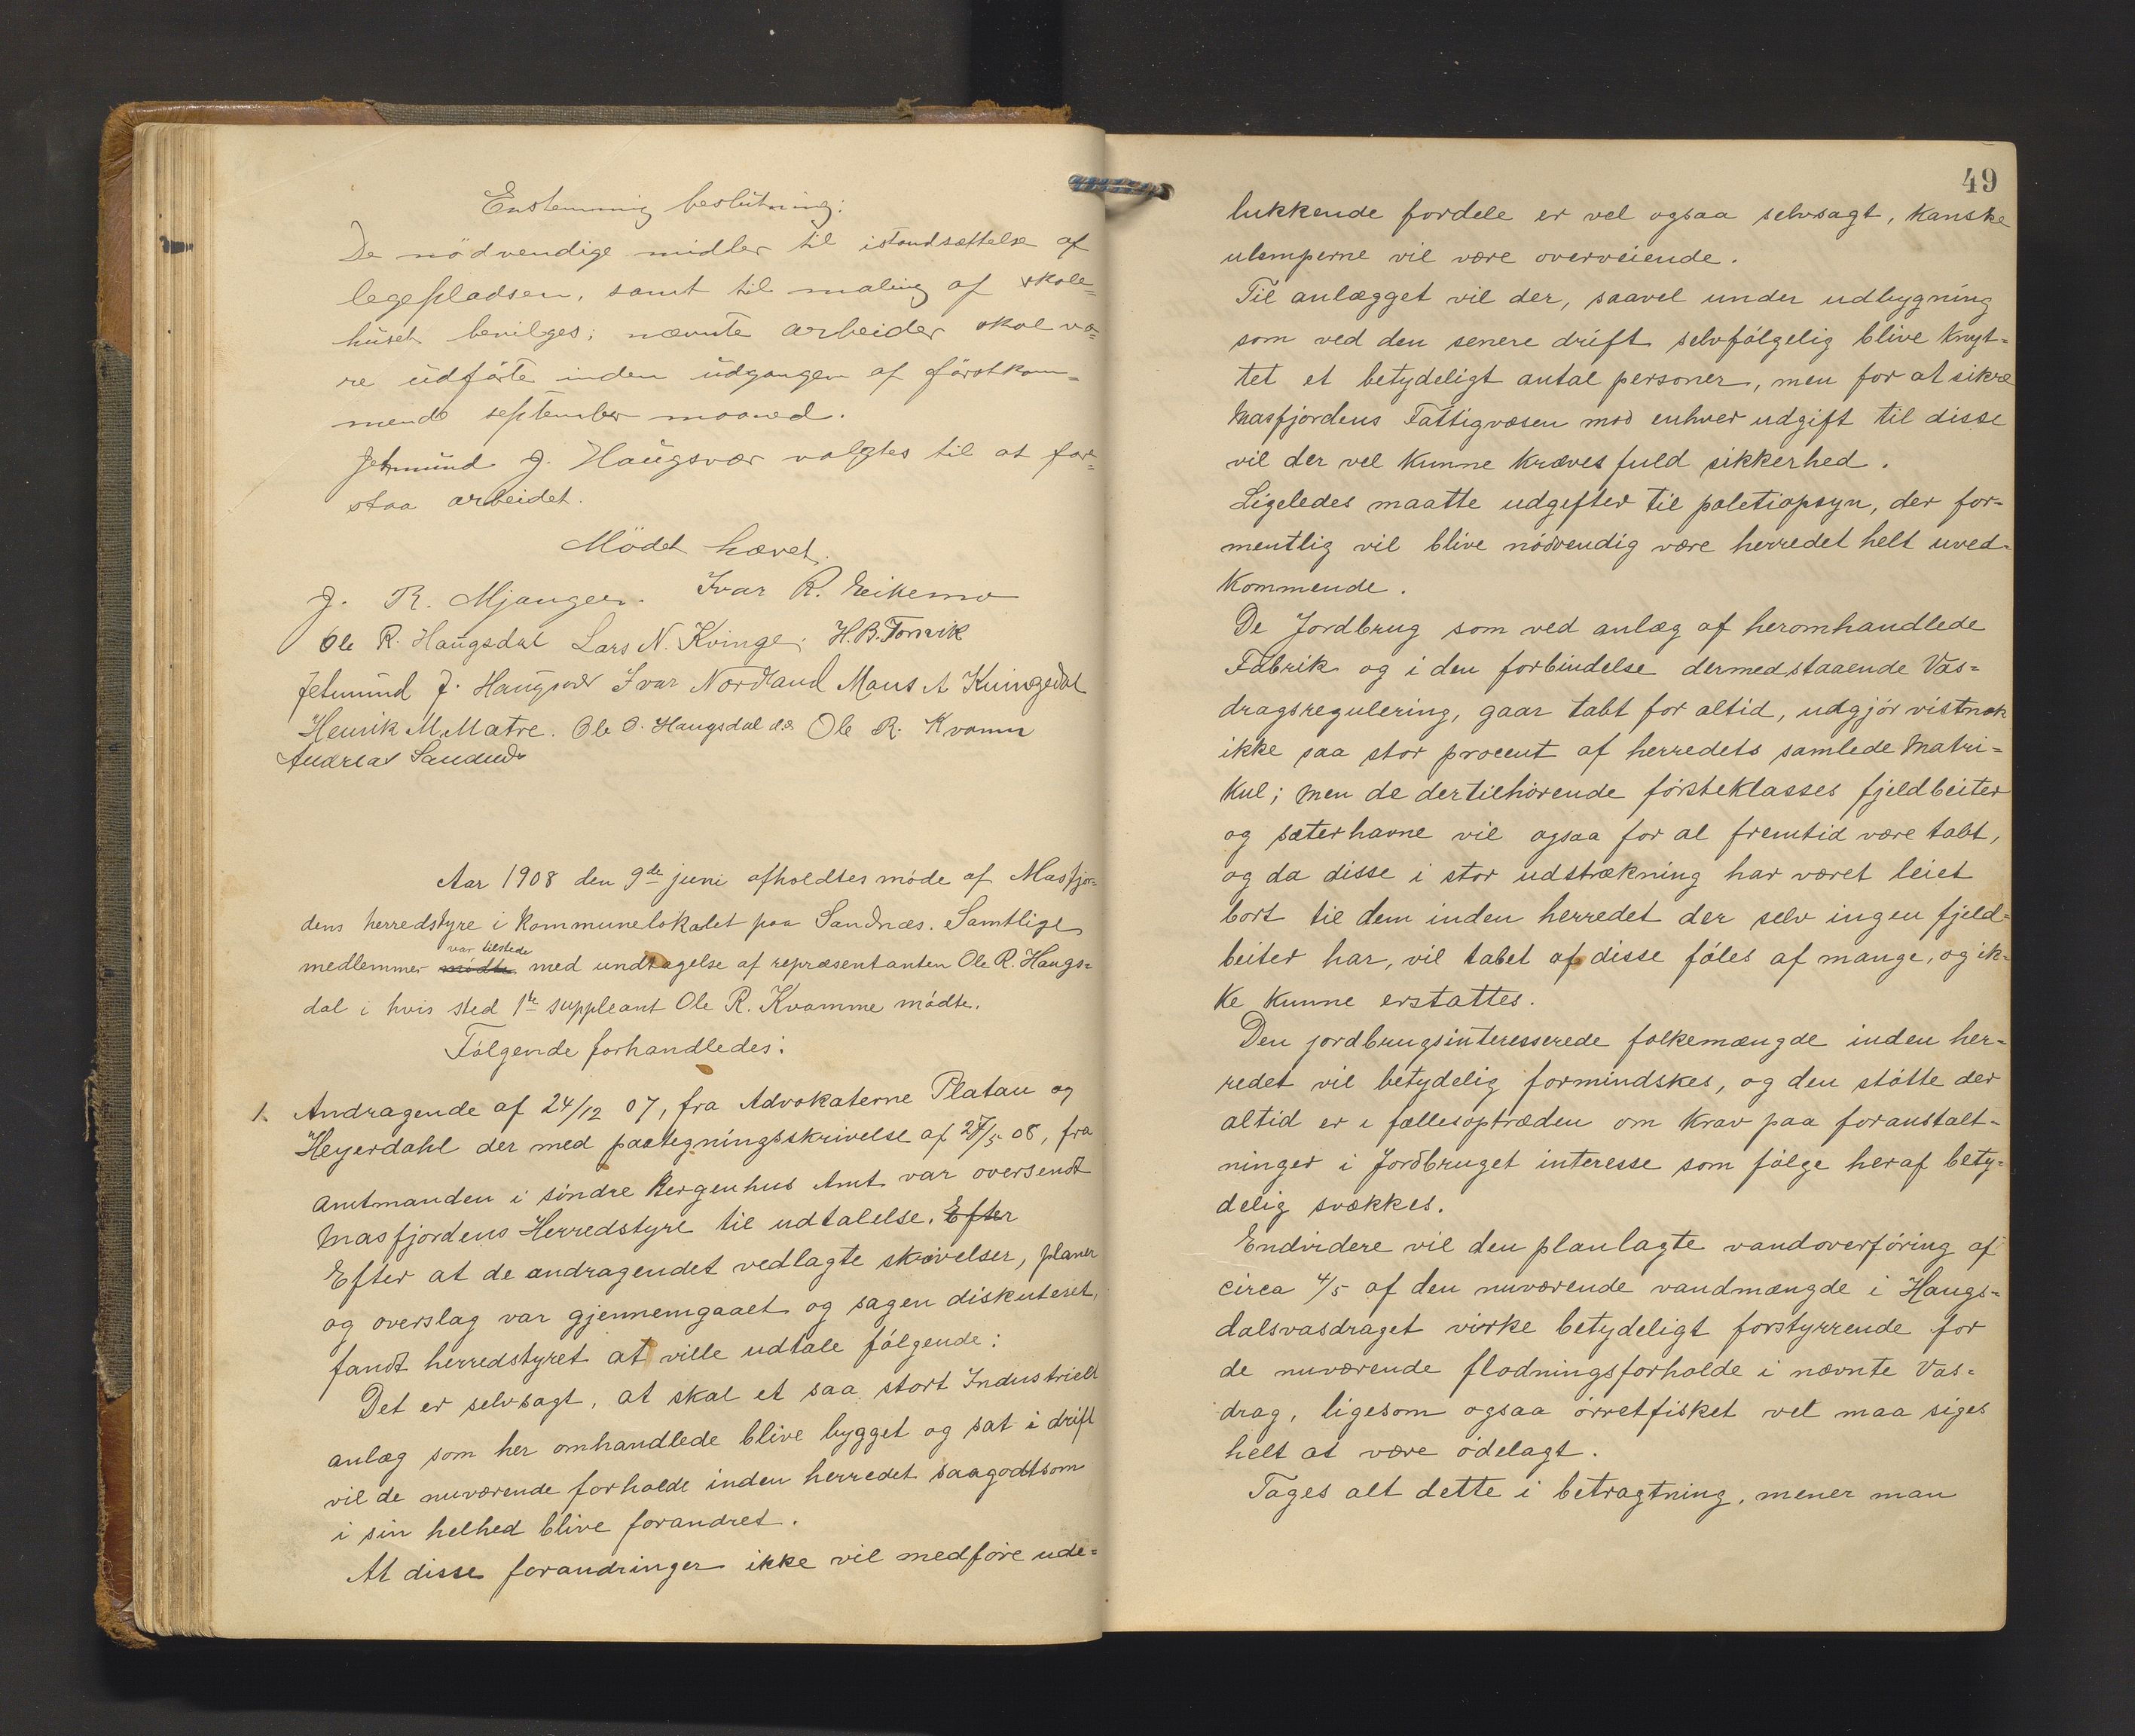 Enstemmig beslutning:
De nödvendige midler til istandsættelse af
legepladsen, samt til maling af skole=
huset bevilges; nævnte arbeider skal væ=
re udförte inden udgangen af förstkom=
mende september maaned.
Jetmund J. Haugsvær valgtes til at for=
staa arbeidet.
Mödet hævet.
J. R. Mjanger. Ivar R. Eikemo
Ole R. Haugsdal Lars N. Kvinge. H.B. Torsvik
Jetmund J. Haugsvær Ivar Nordland Mons A Kvingedal
Henrik M. Matre. Ole O. Haugsdal d.æ Ole R. Kvamm
Andreas Sandnæs
Aar 1908 den 9de juni afholdtes möde af Masfjor=
dens herredstyre i kommunelokalet paa Sandnæs. Samtlige
var tilstede
medlemmer mödte med undtagelse af repræsentanten Ole R. Haugs=
dal i hvis sted 1ste suppleant Ole R. Kvamme mödte.
Fölgende forhandledes:
1. Andragende af 24/12 07, fra Advokaterne Platau og
Heyerdahl der med paategningsskrivelse af 27/5 08, fra
amtmanden i söndre Bergenhus Amt var oversendt
Masfjordens Herredstyre til udtalelse. Efter
Efter at de andragendet vedlagte skrivelser, planer
og overslag var gjennemgaaet og sagen diskuteret,
fandt herredstyret at ville udtale fölgende:
Det er selvsagt, at skal et saa stort Industrielt
anlæg som her omhandlede blive bygget og sat i drift
vil de nuværende forholde inden herredet saagodtsom
i sin helhed blive forandret.
At disse forandringer ikke vil medföre ude=
49
lukkende fordele er vel ogsaa selvsagt, kanske
ulemperne vil være overveiende.
Til anlægget vil der, saavel under udbygning
som ved den senere drift selvfölgelig blive knyt=
tet et betydeligt antal personer, men for at sikre
Masfjordens Fattigvæsen mod enhver udgift til disse
vil der vel kunne kræves fuld sikkerhed.
Ligeledes maatte udgifter til poletiopsyn, der for=
mentlig vil blive nödvendig være herredet helt uved=
kommende.
De Jordbrug som ved anlæg af heromhandlede
Fabrik og i den forbindelse dermedstaaende Vas=
dragsregulering, gaar tabt for altid, udgjör vistnok
ikke saa stor procent af herredets samlede Matri=
kul; men de dertilhörende försteklasses fjeldbeiter
og sæterhavne vil ogsaa for al fremtid være tabt,
og da disse i stor udstrækning har været leiet
bort til dem inden herredet der selv ingen fjeld=
beiter har, vil tabet af disse föles af mange, og ik=
ke kunne erstattes.
Den jordbrugsinteresserede folkemængde inden her=
redet vil betydelig formindskes, og den stötte der
altid er i fællesoptræden om krav paa foranstalt=
ninger i Jordbruget interesse som fölge heraf bety=
delig svækkes.
Endvidere vil den planlagte vandoverföring af
circa 4/5 af den nuværende vandmængde i Haugs=
dalsvasdraget virke betydeligt forstyrrende for
de nuværende flodningsforholde i nævnte Vas=
drag, ligesom ogsaa örretfisket vel maa siges
helt at være ödelagt.
Tages alt dette i betragtning, mener man